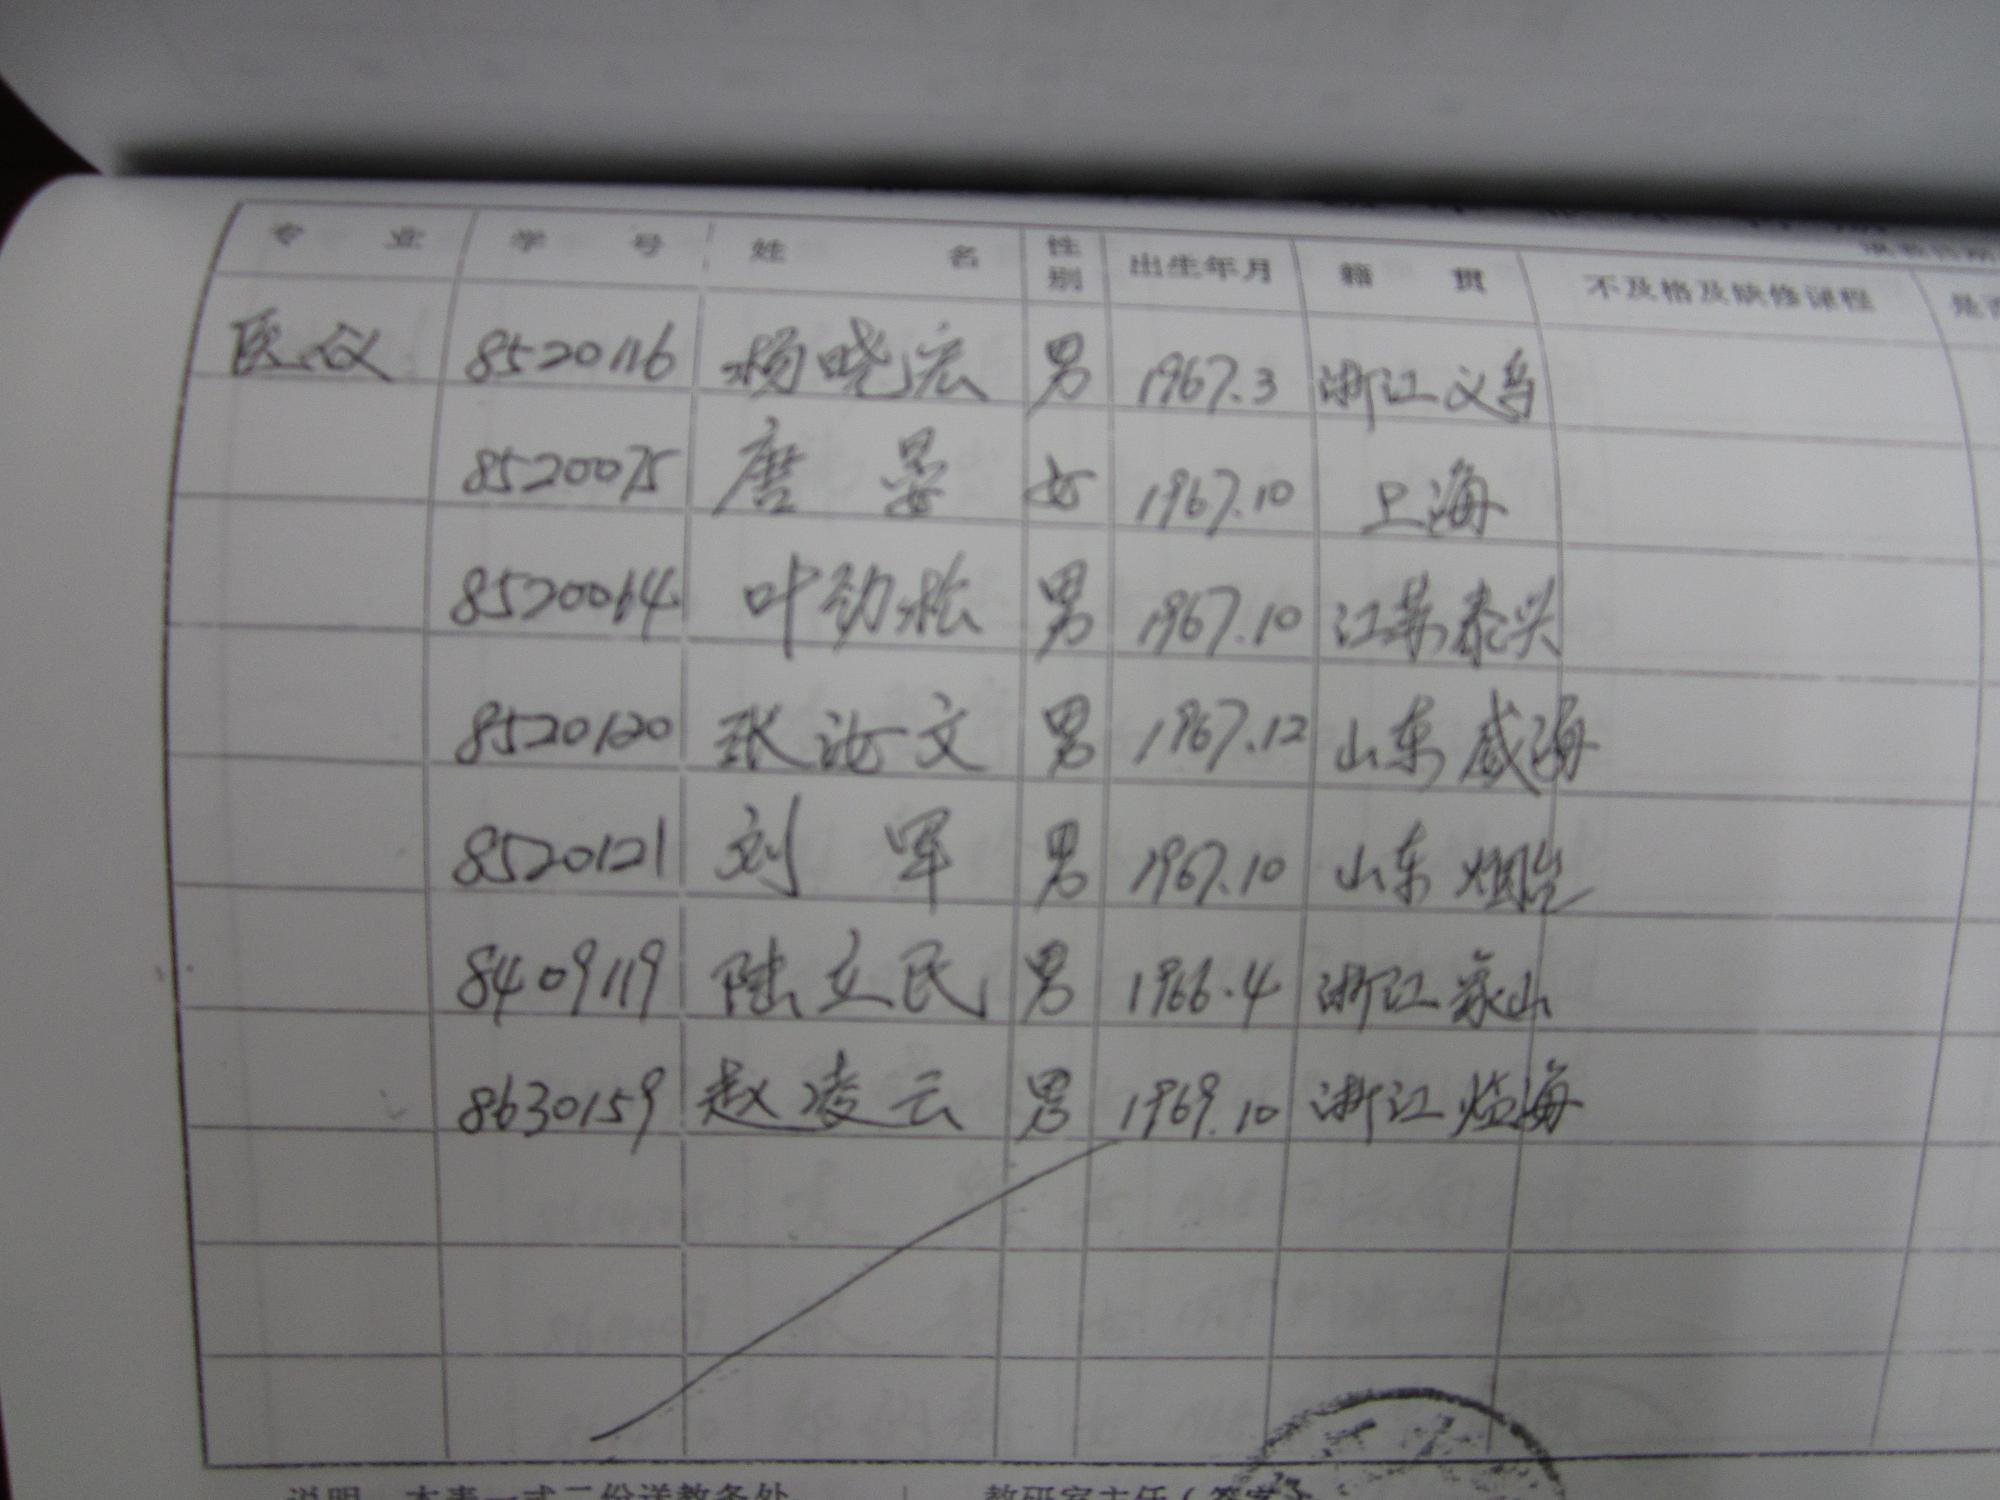 专 业 学 号 姓 名 性别 出生年月 籍 贯 不及格及缺修课程 是否
医仪 8520116 杨晓宏 男 1967.3 浙江义乌
8520075 唐晏 女 1967.10 上海
8520064 叶劲松 男 1967.10 江苏泰兴
8520120 张汝文 男 1967.12 山东威海
8520121 刘军 男 1967.10 山东烟台
8409119 陆立民 男 1966.4 浙江象山
8630159 赵凌云 男 1969.10 浙江临海
说明 本表一式二份送教务处 教研室主任(签字)